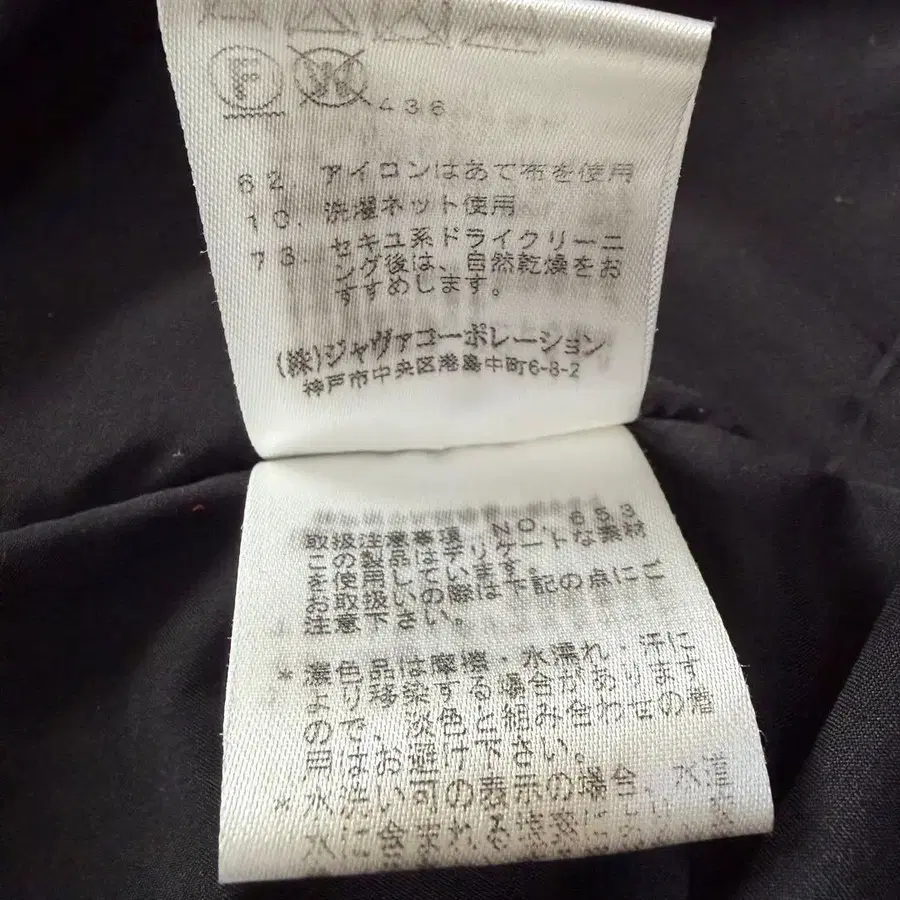 F W
436
62. アイロンはあて布を使用
10. 洗濯ネット使用
73. セキユ系ドライクリーニ
ング後は、自然乾燥をお
すすめします。
(株)ジャヴァコーポレーション
神戸市中央区港島中町6-8-2
取扱注意事項 NO. 653
この製品はデリケートな素材
を使用しています。
お取扱いの際は下記の点にご
注意下さい。
*濃色品は摩擦・水濡れ・汗に
より移染する場合があります
ので、淡色と組み合わせの着
用はお避け下さい。
*水洗い可の表示の場合、水道
水に含まれる塩素に